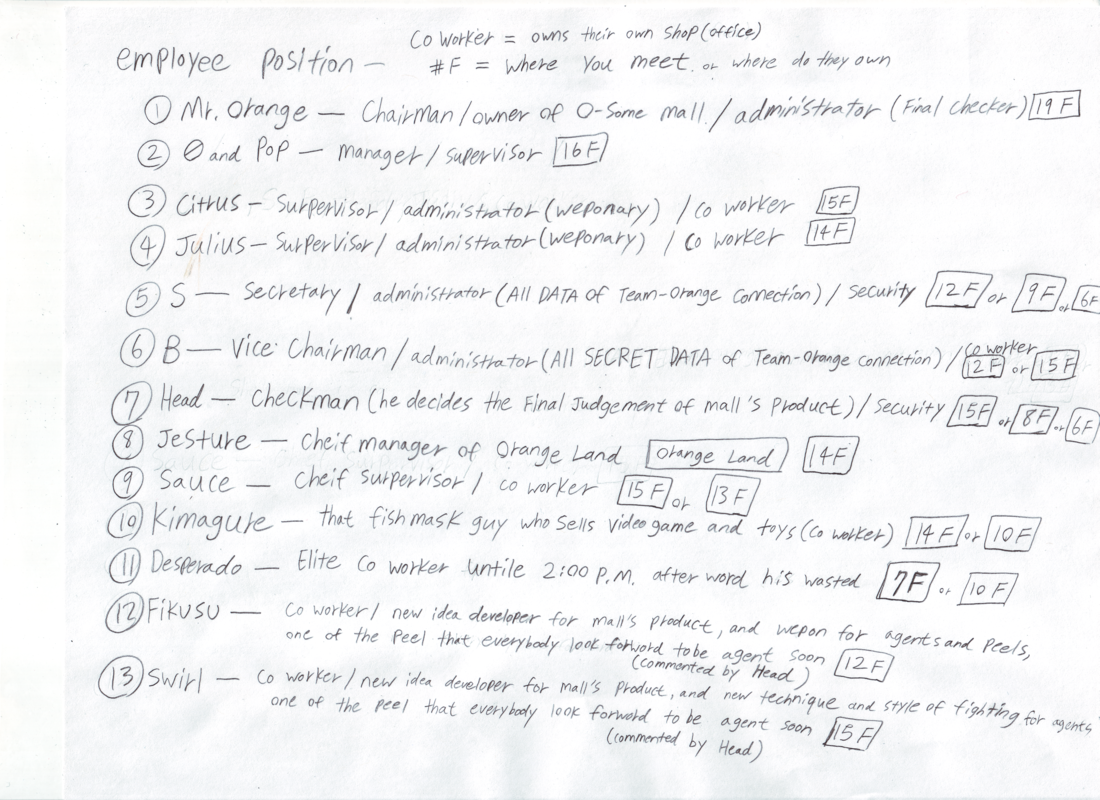 Co Worker = owns their own shop(office)
employee position — #F = where you meet. or where do they own
① Mr. Orange — Chairman/owner of O-Some mall / administrator (Final checker) 19F
② Ø and Pop — manager/supervisor 16F
③ Citrus — Surpervisor/administrator (weponary) / Co worker 15F
④ Julius — Surpervisor/administrator (weponary) / Co worker 14F
⑤ S — Secretary / administrator (All DATA of Team-Orange connection) / Security 12F or 9F or 6F
⑥ B — Vice Chairman / administrator (All SECRET DATA of Team-Orange connection) / Co worker 12F or 15F
⑦ Head — Checkman (he decides the Final Judgement of mall's Product) / Security 15F or 8F or 6F
⑧ Jesture — Cheif manager of Orange Land Orange Land 14F
⑨ Sauce — Cheif Surpervisor / co worker 15F or 13F
⑩ Kimagure — that fishmask guy who sells videogame and toys (Co worker) 14F or 10F
⑪ Desperado — Elite Co worker untile 2:00 P.M. after word his wasted 7F or 10F
⑫ Fikusu — Co worker / new idea developer for mall's product, and wepon for agents and Peels,
one of the Peel that everybody look forword tobe agent soon 12F
(commented by Head)
⑬ Swirl — Co worker / new idea developer for mall's Product, and new technique and style of fighting for agents
one of the Peel that everybody look forword to be agent soon 15F
(commented by Head)